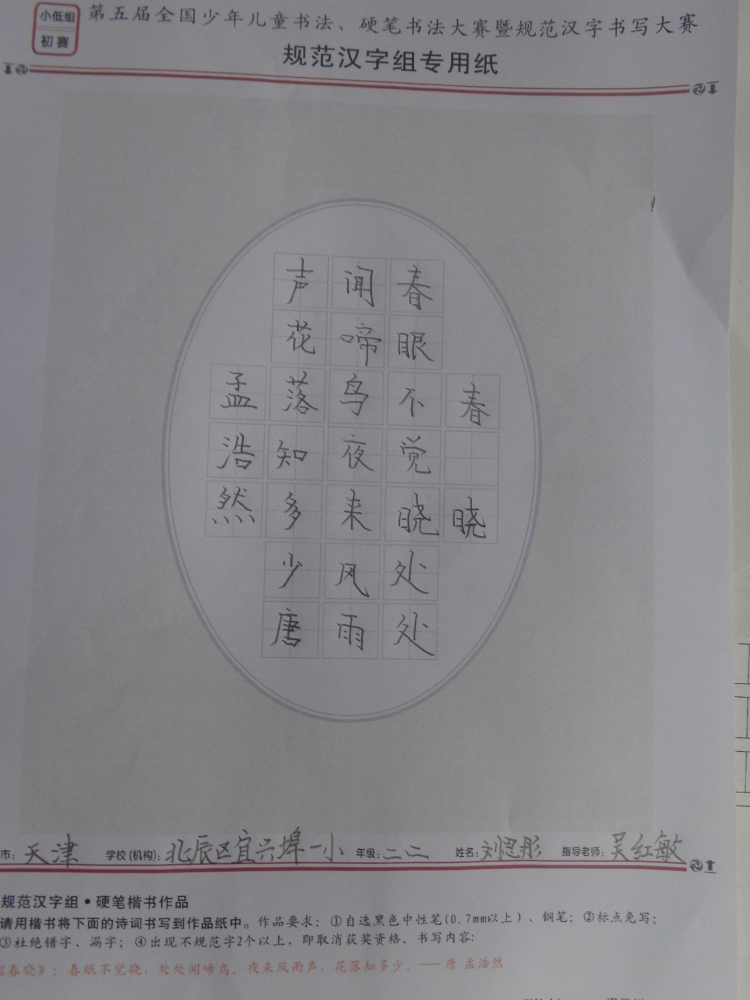 小低组
初赛
第五届全国少年儿童书法、硬笔书法大赛暨规范汉字书写大赛
规范汉字组专用纸
春晓
春眠不觉晓处处
闻啼鸟夜来风雨
声花落知多少唐
孟浩然
市：天津 学校(机构)：北辰区宜兴埠一小 年级：二、二 姓名：刘思彤 指导老师：吴红敏
规范汉字组•硬笔楷书作品
请用楷书将下面的诗词书写到作品纸中。作品要求：①自选黑色中性笔(0.7mm以上)、钢笔；②标点免写；
③杜绝错字、漏字；④出现不规范字2个以上，即取消获奖资格。书写内容：
《春晓》：春眠不觉晓，处处闻啼鸟。夜来风雨声，花落知多少。——唐 孟浩然